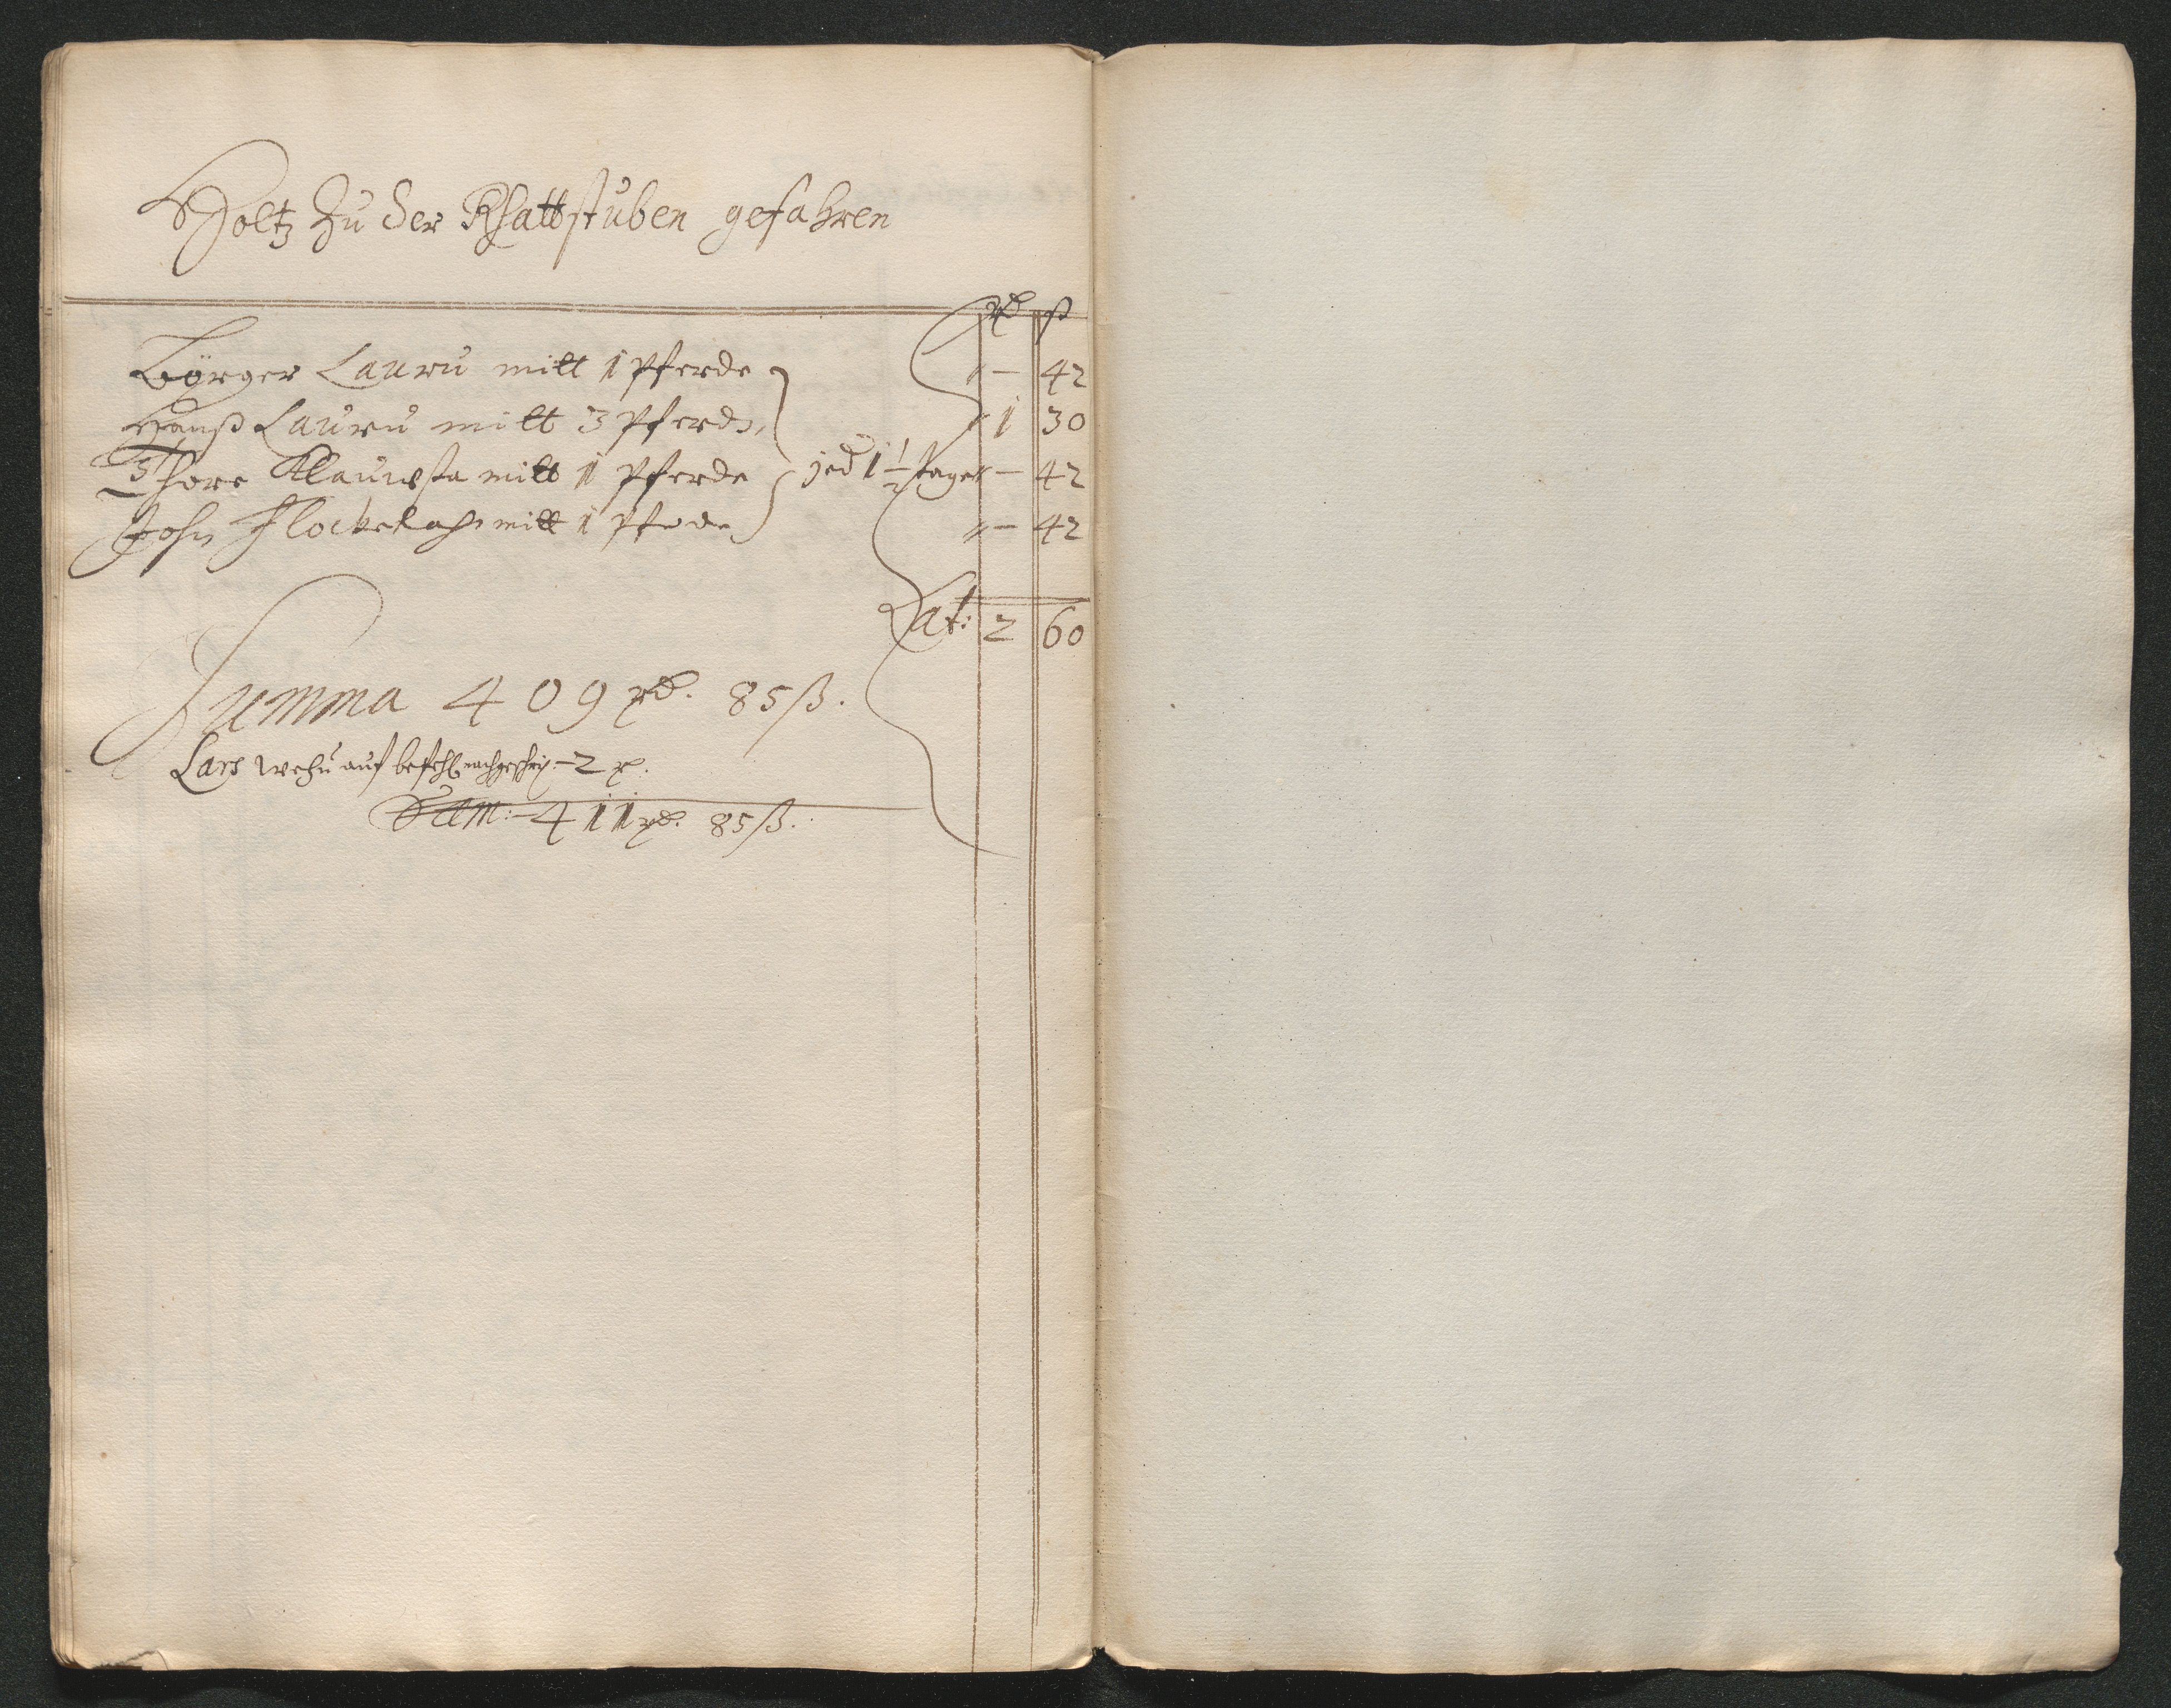 Holtz zu der Rhattstuben gefahren
rd ß
Börger Lauru mitt 1 Pferde - 42
Hanß Lauru mitt 3 Pferde, 1 30
Thore Klauwsta mitt 1 Pferde jed 1 1/2 tage - 42
John mitt 1 Pferde - 42
Lat: 2 60
Summa 409 rd. 85 ß.
Lars Wehu auf befehl nachgeschr: - 2 r.
Sum: 411 rd. 85 ß.